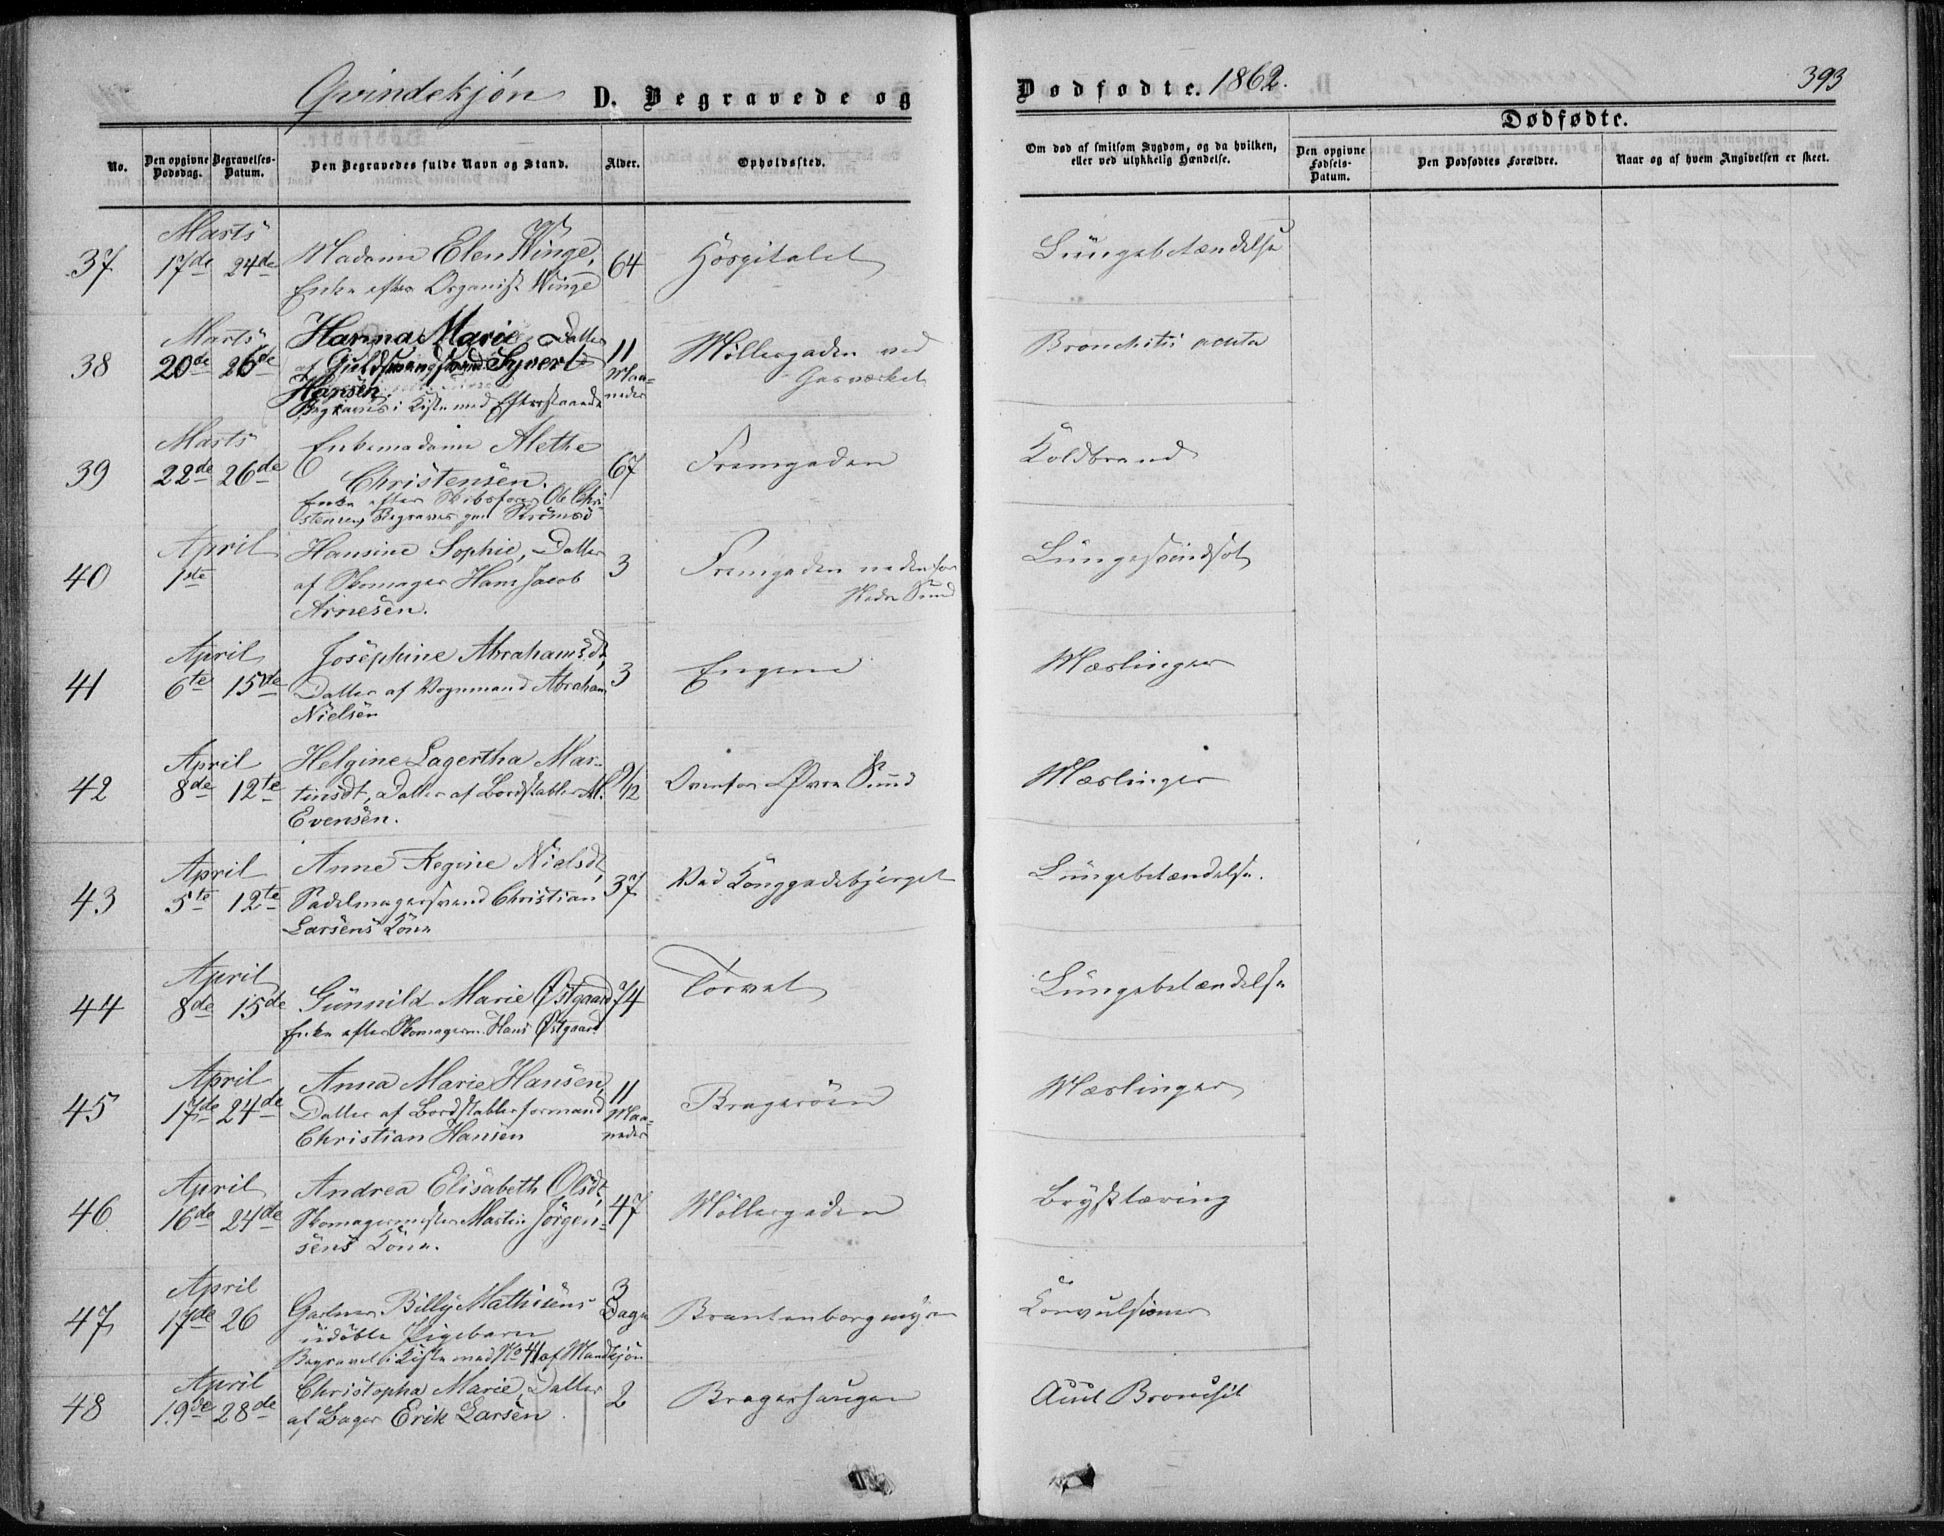 Qvindekjön D. Begravede og
Dødfødte. 1862.
393
No.
Den opgivne Dødsdag.
Begravelses-Datum.
Den Begravedes fulde Navn og Stand.
Alder.
Opholdssted.
Om død af smitsom Sygdom, og da hvilken, eller ved ulykkelig Hændelse.
Dødfødte.
Den opgivne Fødsels-Datum.
Den Dødfødtes Forældre.
Naar og af hvem Angivelsen er skeet.
Marts
37 17de 24de Madame Elen Winge, 64 Hospitalet Lungebetændelse
Enke efter Organist Winge
Marts Hanna Marie, Datter 11
38 20de 26de af Guldsmedsvend Syvert Maa- Möllergaden ved Bronchitis acuta
Hansen. neder Gasværket
Begraves i Kiste med Efterstaaende
Marts Enkemadame Alethe
39 22de 26de Christensen. 67 Fremgaden Koldbrand
Enke efter Skibsfører Ole Chri-
stensen, Begraves paa Strömsö
April Hansine Sophie, Datter
40 1ste af Skomager Hans Jacob 3 Fremgaden nedenfor Lungesvindsot
Arnesen. Nedre Sund
April Josephine Abrahamsdt,
41 6te 15de Datter af Vognmand Abraham 3 Engene Mæslinger
Nielsen
April Helgine Lagertha Mar-
42 8de 12te tinsdt, Datter af Bordstabler M. 9/12 Ovenfor Øvre Sund Mæslinger
Evensen.
April Anne Regine Nielsdt,
43 5te 12te Sadelmagersvend Christian 37 Ved Konggadebjerget Lungebetændelse.
Larsens Kone
April
44 8de 15de Gunnild Marie Østgaard 74 Torvet Lungebetændelse
Enke efter Skomagerm. Hans Østgaard
April Anna Marie Hansen, 11
45 17de 24de Datter af Bordstablerformand Maa- Brageröen Mæslinger
Christian Hansen neder
April Andrea Elisabeth Olsdt,
46 16de 24de Skomagermester Martin Jörgen- 47 Möllergaden Brysttæring
sens Kone.
April 3
47 17de 26 Gartner Billy Mathisens Dage Brantenborgmyren Convulsioner
udöbte Pigebarn
Begravet i Kiste med No 41 af Mandkjön
April Christopha Marie, Datter
48 19de 28de af Bager Erik Larsen 2 Bragerhaugen Acut Bronchit